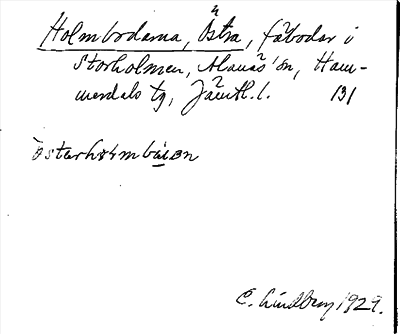 Holmbodarna, Östra, fäbodar i
Storholmen, Alanäs' sn, Ham-
merdals tg, Jämtl. l. 131
C. Lindberg 1929.